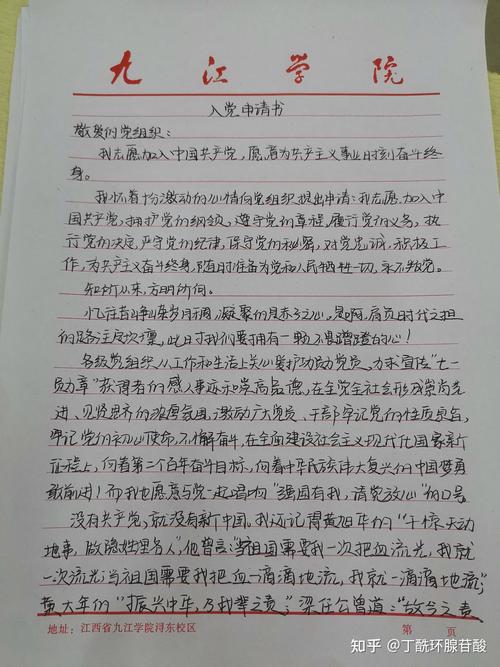 九江学院
入党申请书
敬爱的党组织：
我志愿加入中国共产党，愿意为共产主义事业时刻奋斗终
身。
我怀着十分激动的心情向党组织提出申请：我志愿加入中
国共产党，拥护党的纲领，遵守党的章程，履行党的义务，执
行党的决定，严守党的纪律，保守党的秘密，对党忠诚，积极工
作，为共产主义奋斗终身，随时准备为党和人民牺牲一切，永不叛党。
知所从来，方明所向。
忆往昔峥嵘岁月稠，凝聚的是赤子之心。是啊，肩负时代之担
的路注定坎坷，此时我们要拥有一颗不畏蹭蹬的心！
各级党组织从工作和生活上关心爱护功勋党员，力求宣传“七一
勋章”获得者的感人事迹和崇高品德，在全党全社会形成崇尚先
进、见贤思齐的浓厚氛围，激励广大党员、干部牢记党的性质宗旨，
牢记党的初心使命，不懈奋斗，在全面建设社会主义现代化国家新
征程上，向着第二个百年奋斗目标，向着中华民族伟大复兴的中国梦勇
敢前进！而我也愿意与党一起唱响“强国有我，请党放心”的口号。
没有共产党，就没有新中国。我还记得黄旭华的“干惊天动
地事，做隐姓埋名人”，他曾言：“当祖国需要我一次把血流光，我就
一次流光；当祖国需要我把血一滴滴地流，我就一滴滴地流”；
黄大年的“振兴中华，乃我辈之责”；梁任公曾道：“故今之责
地址：江西省九江学院浔东校区 第 页
知乎 @丁酰环腺苷酸